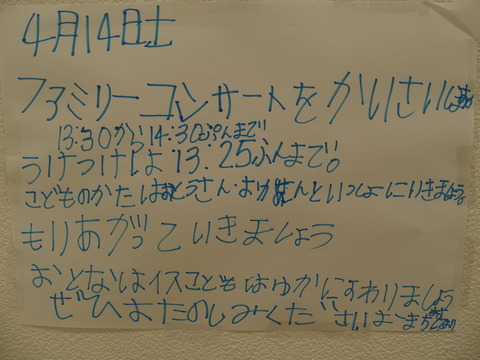 4月14日土
ファミリーコンサートをかいさいします
13:30から14:30ぷんまで
うけつけは13:25ふんまで。
こどものかたはおとうさん・おかあさんといっしょにいきましょう
もりあがっていきましょう
おとなはイスこどもはゆかにすわりましょう
ぜひおたのしみください